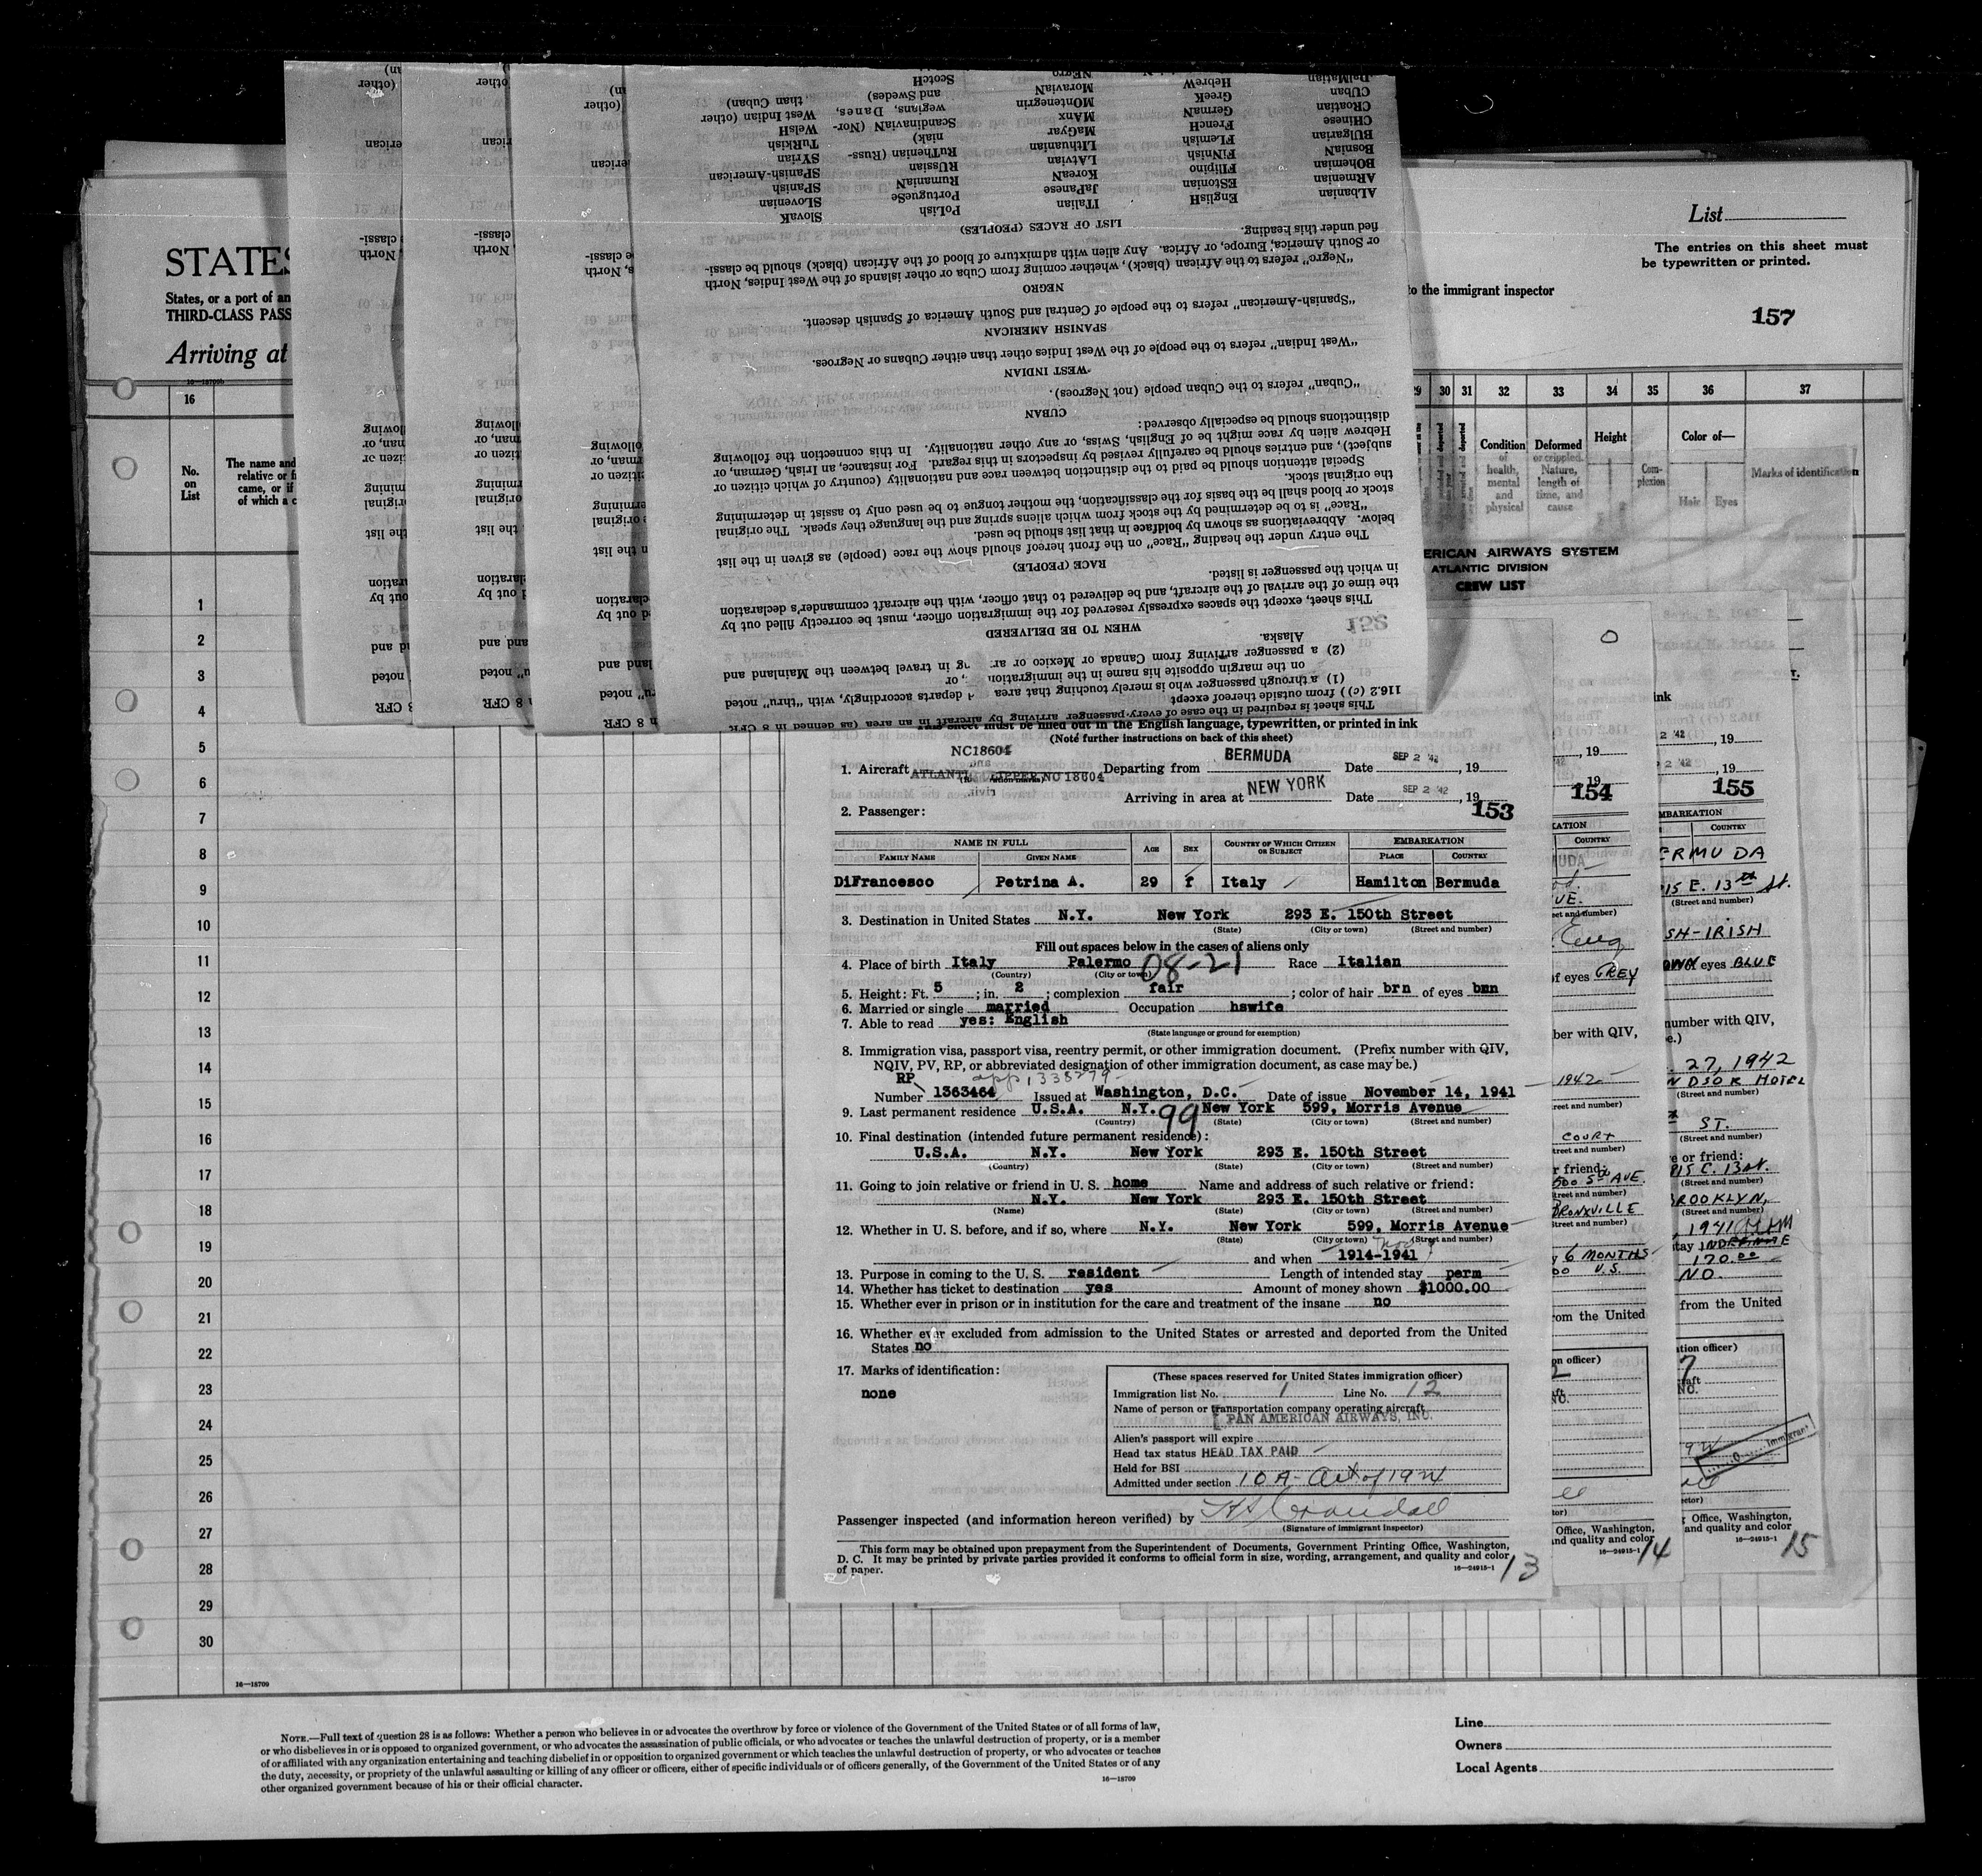 STATES
States, or a port of an
THIRD-CLASS PASS
Arriving at
16—18709b
16
No.
on
List
The name and
relative or f
came, or if
of which a c
1
2
3
4
5
6
7
8
9
10
11
12
13
14
15
16
17
18
19
20
21
22
23
24
25
26
27
28
29
30
16—18709
List
The entries on this sheet must
be typewritten or printed.
to the immigrant inspector
157
30 31 32 33 34 35 36 37
Condition
of
health,
mental
and
physical
Deformed
or crippled.
Nature,
length of
time, and
cause
Height
Com-
plexion
Color of—
Hair Eyes
Marks of identification
ERICAN AIRWAYS SYSTEM
ATLANTIC DIVISION
CREW LIST
This sheet is required in the case of every passenger arriving by aircraft in an area (as defined in 8 CFR
116.2 (c)) from outside thereof except
(1) a through passenger who is merely touching that area departs accordingly, with "thru" noted
on the margin opposite his name in the immigration , or
(2) a passenger arriving from Canada or Mexico or ar g in travel between the Mainland and
Alaska.
WHEN TO BE DELIVERED
This sheet, except the spaces expressly reserved for the immigration officer, must be correctly filled out by
the time of the arrival of the aircraft, and be delivered to that officer, with the aircraft commander's declaration
in which the passenger is listed.
RACE (PEOPLE)
The entry under the heading "Race" on the front hereof should show the race (people) as given in the list
below. Abbreviations as shown by boldface in that list should be used.
"Race" is to be determined by the stock from which aliens spring and the language they speak. The original
stock or blood shall be the basis for the classification, the mother tongue to be used only to assist in determining
the original stock.
Special attention should be paid to the distinction between race and nationality (country of which citizen or
subject), and entries should be carefully revised by inspectors in this regard. For instance, an Irish, German, or
Hebrew alien by race might be of English, Swiss, or any other nationality. In this connection the following
distinctions should be especially observed:
CUBAN
"Cuban" refers to the Cuban people (not Negroes).
WEST INDIAN
"West Indian" refers to the people of the West Indies other than either Cubans or Negroes.
SPANISH AMERICAN
"Spanish-American" refers to the people of Central and South America of Spanish descent.
NEGRO
"Negro" refers to the African (black), whether coming from Cuba or other islands of the West Indies, North
or South America, Europe, or Africa. Any alien with admixture of blood of the African (black) should be classi-
fied under this heading.
LIST OF RACES (PEOPLES)
ALbanian EnglisH ITalian PoLish SlovaK
ARmenian EStonian JaPanese PortugueSe SLovenian
BOhemian FIlipino KoreaN RumaniaN SPanish
BosniaN FiNnish LAtvian RUssian SPanish-American
BUlgarian FLemish LIthuanian RuThenian (Russ- SYrian
CHinese FrencH MaGyar niak) TuRkish
CRoatian GermaN MAnx ScandinaviaN (Nor- WelsH
CUban GreeK MOntenegrin wegians, Danes, West Indian (other
DalMatian HebreW MoraviaN and Swedes) than Cuban)
NEgro ScotcH
must be filled out in the English language, typewritten, or printed in ink
(Note further instructions on back of this sheet)
NC18604
1. Aircraft Departing from BERMUDA Date SEP 2 '42, 19
Arriving in area at NEW YORK Date SEP 2 '42, 19
2. Passenger: 153
NAME IN FULL AGE SEX COUNTRY OF WHICH CITIZEN OR SUBJECT EMBARKATION
FAMILY NAME GIVEN NAME PLACE COUNTRY
DiFrancesco Petrina A. 29 f Italy Hamilton Bermuda
3. Destination in United States N.Y. New York 293 E. 150th Street
(State) (City or town) (Street and number)
Fill out spaces below in the cases of aliens only
4. Place of birth Italy Palermo 08-21 Race Italian
(Country) (City or town)
5. Height: Ft. 5; in. 2; complexion fair; color of hair brn of eyes bnn
6. Married or single married Occupation hswife
7. Able to read yes: English
(State language or ground for exemption)
8. Immigration visa, passport visa, reentry permit, or other immigration document. (Prefix number with QIV,
NQIV, PV, RP, or abbreviated designation of other immigration document, as case may be.)
RP app 1338279
Number 1363464 Issued at Washington, D.C. Date of issue November 14, 1941
9. Last permanent residence U.S.A. N.Y. 99 New York 599, Morris Avenue
(Country) (State) (City or town) (Street and number)
10. Final destination (intended future permanent residence):
U.S.A. N.Y. New York 293 E. 150th Street
(Country) (State) (City or town) (Street and number)
11. Going to join relative or friend in U. S. home Name and address of such relative or friend:
N.Y. New York 293 E. 150th Street
(Name) (State) (City or town) (Street and number)
12. Whether in U. S. before, and if so, where N.Y. New York 599, Morris Avenue
(State) (City or town) (Street and number)
and when 1914-1941
13. Purpose in coming to the U. S. resident Length of intended stay perm
14. Whether has ticket to destination yes Amount of money shown $1000.00
15. Whether ever in prison or in institution for the care and treatment of the insane no
16. Whether ever excluded from admission to the United States or arrested and deported from the United
States no
17. Marks of identification:
none
(These spaces reserved for United States immigration officer)
Immigration list No. 1 Line No. 12
Name of person or transportation company operating aircraft
PAN AMERICAN AIRWAYS, INC.
Alien's passport will expire
Head tax status HEAD TAX PAID
Held for BSI
Admitted under section 10A-Act of 1924
Passenger inspected (and information hereon verified) by
(Signature of immigrant inspector)
This form may be obtained upon prepayment from the Superintendent of Documents, Government Printing Office, Washington,
D. C. It may be printed by private parties provided it conforms to official form in size, wording, arrangement, and quality and color
of paper. 16—24915-1 13
154
GREY
ber with QIV,
1942
COURT
500 5th AVE.
BRONXVILLE
6 MONTHS
U.S.
rom the United
on officer)
Office, Washington,
and quality and color
16—24915-1 14
ink
2 '42, 19
155
MBARKATION
COUNTRY
ERMUDA
915 E. 13th St.
(Street and number)
SH-IRISH
eyes BLUE
number with QIV,
27, 1942
NDSOR HOTEL
(Street and number)
ST.
(Street and number)
e or friend:
(Street and number)
BROOKLYN,
(Street and number)
1941
stay INDEFINITE
170.00
NO.
from the United
ation officer)
Immigrant
Office, Washington,
and quality and color
16—24915-1 15
NOTE.—Full text of question 28 is as follows: Whether a person who believes in or advocates the overthrow by force or violence of the Government of the United States or of all forms of law,
or who disbelieves in or is opposed to organized government, or who advocates the assassination of public officials, or who advocates or teaches the unlawful destruction of property, or is a member
of or affiliated with any organization entertaining and teaching disbelief in or opposition to organized government or which teaches the unlawful destruction of property, or who advocates or teaches
the duty, necessity, or propriety of the unlawful assaulting or killing of any officer or officers, either of specific individuals or of officers generally, of the Government of the United States or of any
other organized government because of his or their official character. 16—18709
Line
Owners
Local Agents